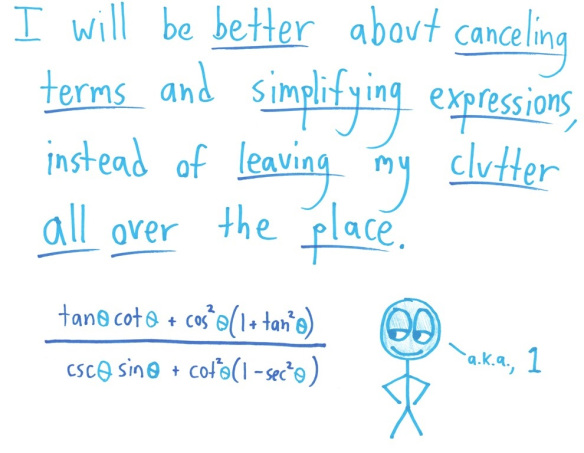 I will be better about canceling
terms and simplifying expressions,
instead of leaving my clutter
all over the place.
tanθ cotθ + cos²θ(1 + tan²θ)
cscθ sinθ + cot²θ(1 - sec²θ)
a.k.a., 1